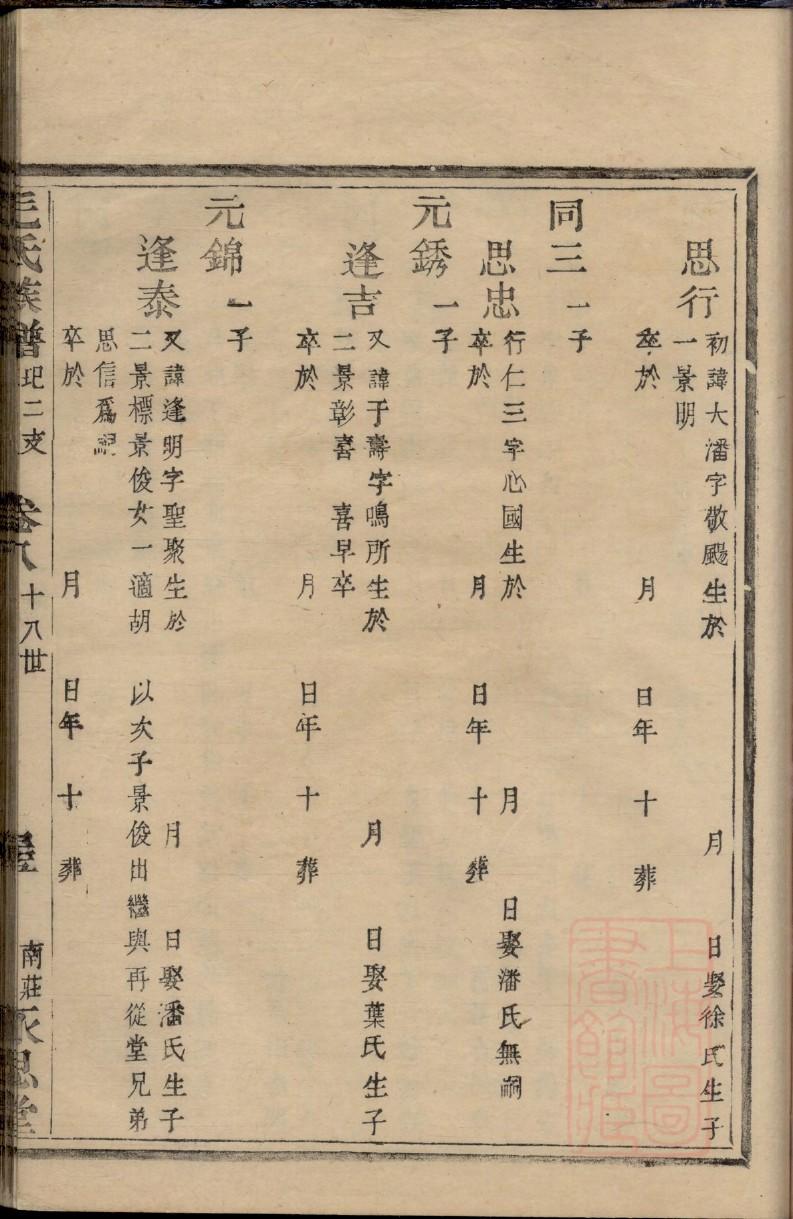 思行
初諱大潘字敬颺生於 月 日娶徐氏生子
一景明
卒於 月 日年 十 葬
同三 一子
思忠
行仁三字心國生於 月 日娶潘氏無嗣
卒於 月 日年 十 葬
元銹 一子
逢吉
又諱于壽字鳴所生於 月 日娶葉氏生子
二景彰喜 喜早卒
卒於 月 日年 十 葬
元錦 一子
逢泰
又諱逢明字聖聚生於 月 日娶潘氏生子
二景標景俊女一適胡 以次子景俊出繼與再從堂兄弟
思信爲嗣
卒於 月 日年 十 葬
毛氏族譜 二支 卷八 十八世 南莊永思堂
上海圖書館藏